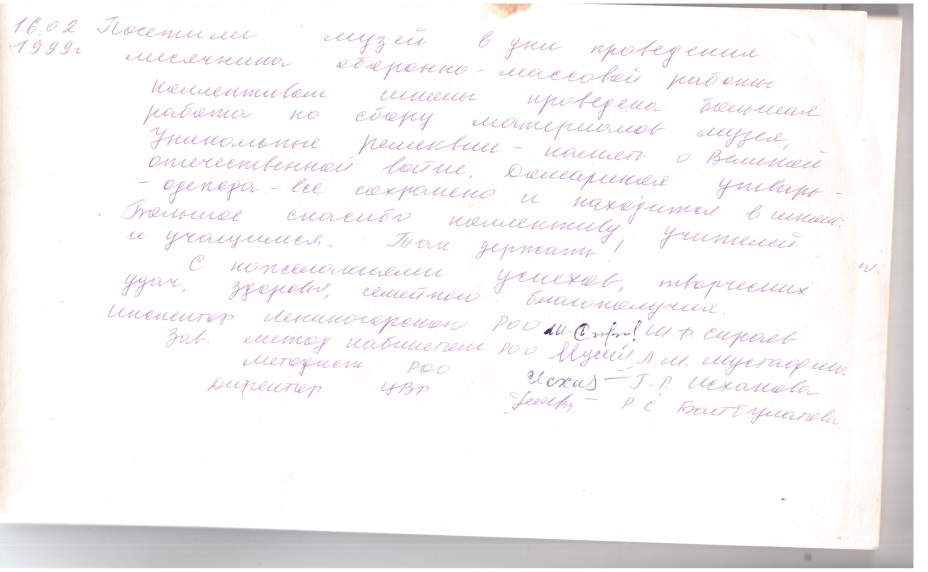 16.02 Посетили музей в дни проведения
1999г месячника оборонно-массовой работы
Коллективом школы проведена большая
работа по сбору материалов музея,
Уникальные реликвии - память о Великой
отечественной войне. Домашняя утварь -
- одежда - все сохранено и находится в школе.
Большое спасибо коллективу учителей
и учащимся. Так держать!
С пожеланиями успехов, творческих
удач, здоровья, семейного благополучия.
Инспектор Лениногорского РОО Ш.Ф Сираев
Зав. метод кабинетом РОО Л.М. Мустафина
Методист РОО Г.Р. Исхакова
Директор ЦВР Р С